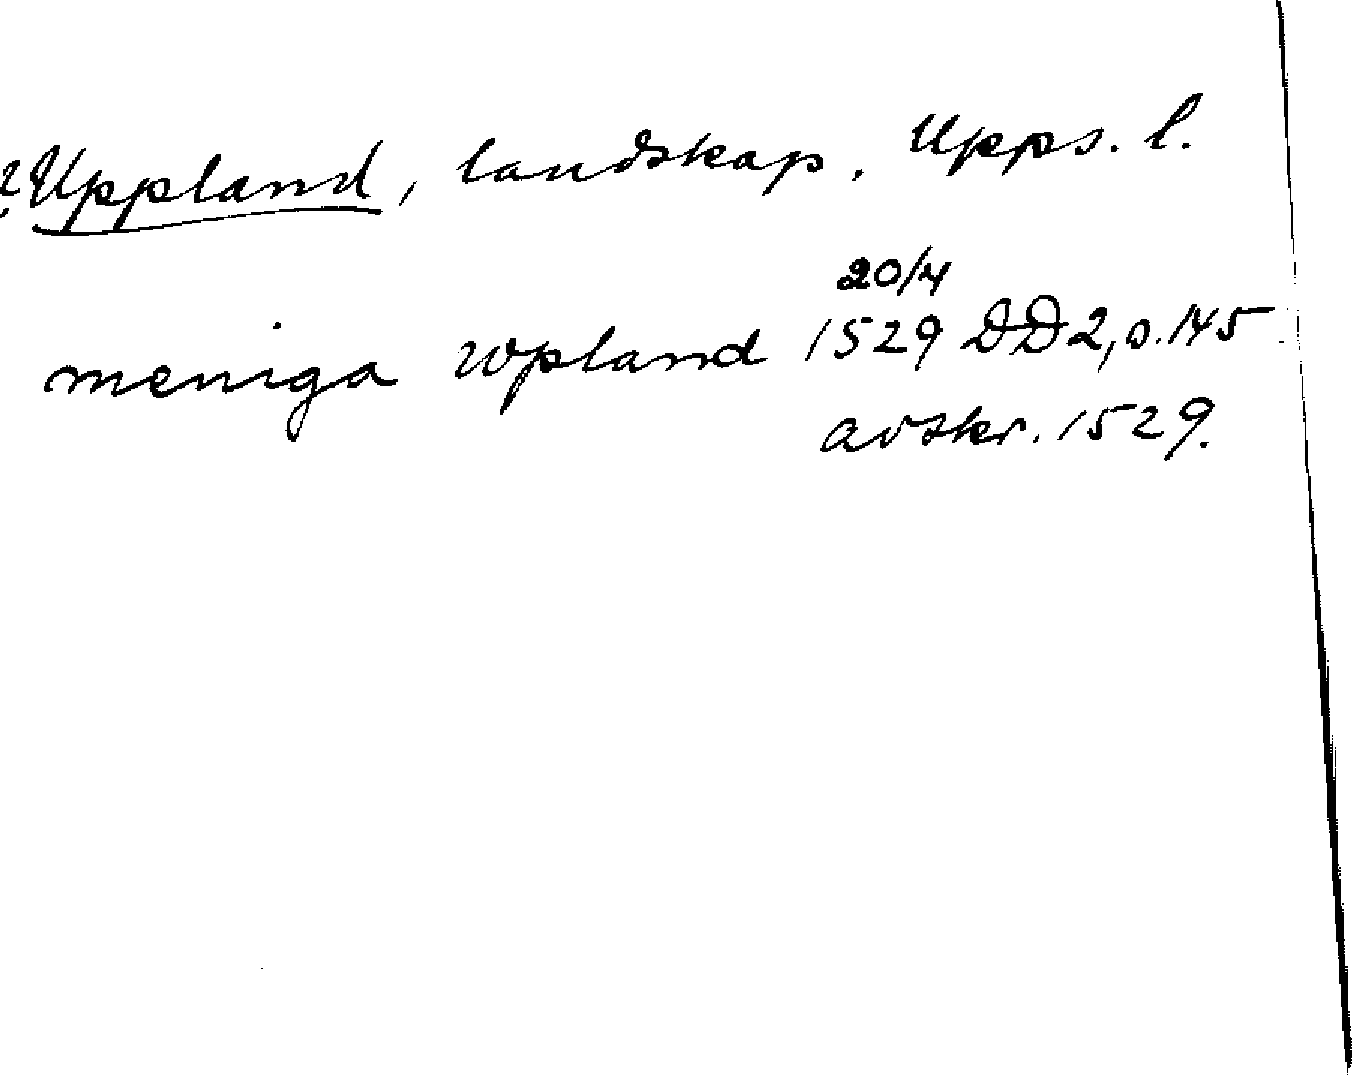 Uppland, landskap. Upps. l.
20/4
meniga wpland 1529 DD2, s. 145
avskr. 1529.